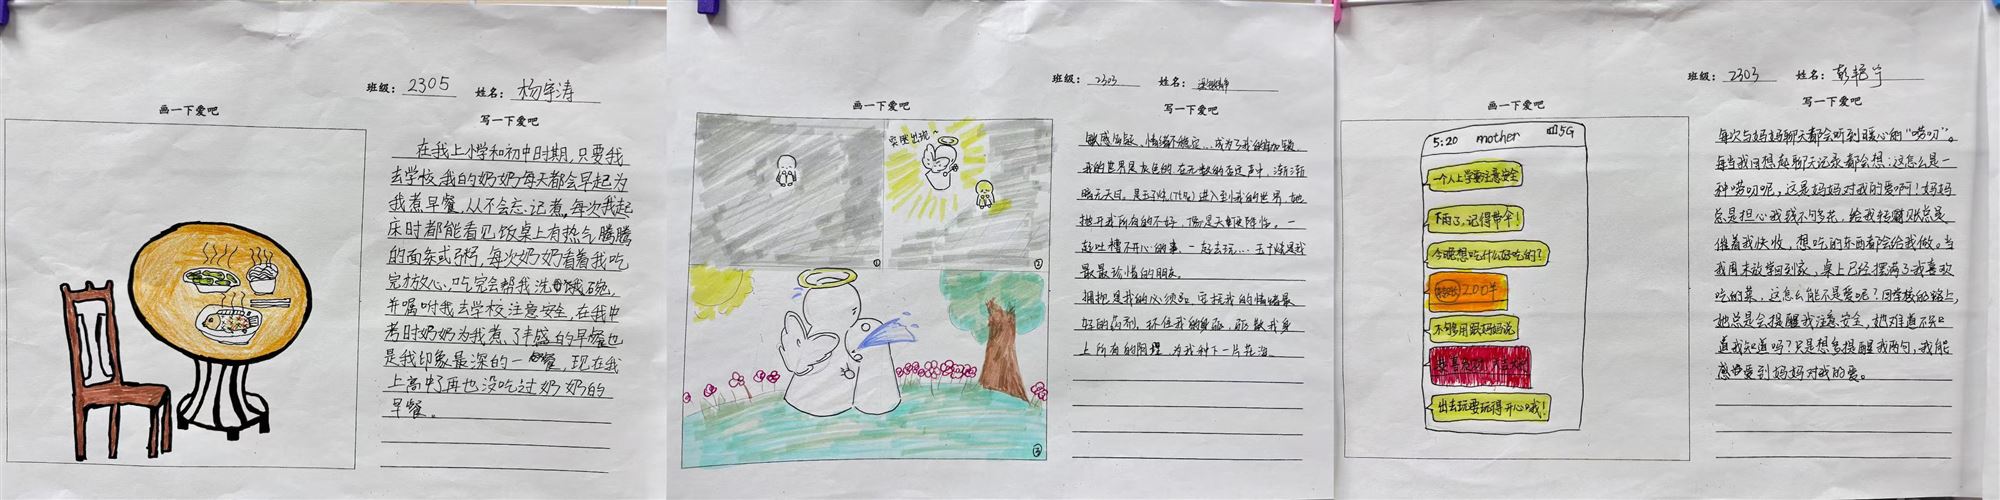 班级：2305 姓名：杨宇涛
画一下爱吧
写一下爱吧
在我上小学和初中时期，只要我
去学校我的奶奶每天都会早起为
我煮早餐，从不会忘记煮，每次我起
床时都能看见饭桌上有热气腾腾
的面条或粥，每次奶奶看着我吃
完才放心，吃完会帮我洗碗，
并嘱咐我去学校注意安全，在我中
考时奶奶为我煮了丰盛的早餐也
是我印象最深的一餐，现在我
上高中了再也没吃过奶奶的
早餐。
班级：2303 姓名：
画一下爱吧
写一下爱吧
突然出现~
①
②
③
敏感多疑，情绪不稳定…成为了我的枷锁
我的世界是灰色的，在无数的否定声中，渐渐
暗无天日。是进入到我的世界，她
抛开我所有的不好，像是天使降临。一
起吐槽不开心的事，一起去玩…是我
最最珍惜的朋友。
拥抱是我的必需品，它是我的情绪最
好的药剂，环住我的，驱散我身
上所有的阴霾，为我种下一片花海
班级：2303 姓名：彭艳宁
画一下爱吧
写一下爱吧
5:20 mother 5G
一个人上学要注意安全
下雨了，记得带伞！
今晚想吃什么好吃的？
200半
不够用跟妈妈说
出去玩要玩得开心哦！
每次与妈妈聊天都会听到暖心的“唠叨”。
每当我回想起聊天记录都会想：这怎么是一
种唠叨呢，这是妈妈对我的爱啊！妈妈
总是担心我钱不够花，给我转账总是
催着我快收，想吃的东西都会给我做。当
我周末放学回到家，桌上已经摆满了我喜欢
吃的菜，这怎么能不是爱呢？回学校的路上，
她总是会提醒我注意安全，她难道不知
道我知道吗？只是想多提醒我两句，我能
感受到妈妈对我的爱。